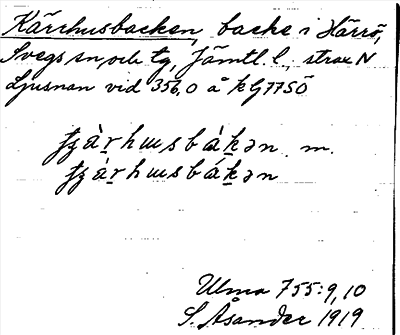 Kärrhusbacken, backe i Härrö,
Svegs sn, och tg, Jämtl. l., strax N
Ljusnan vid 356,0 å kG77SÖ
ʈʂàrhusbákən m.
ʈʂàrhusbákən
Ulma 755:9,10
S. Åsander 1919